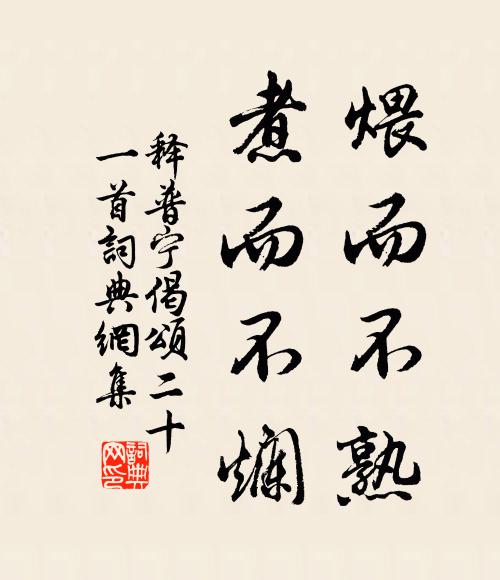 煨而不熟
煮而不爛
释普宁偈頌二十
一首詞典網集
詞典网印